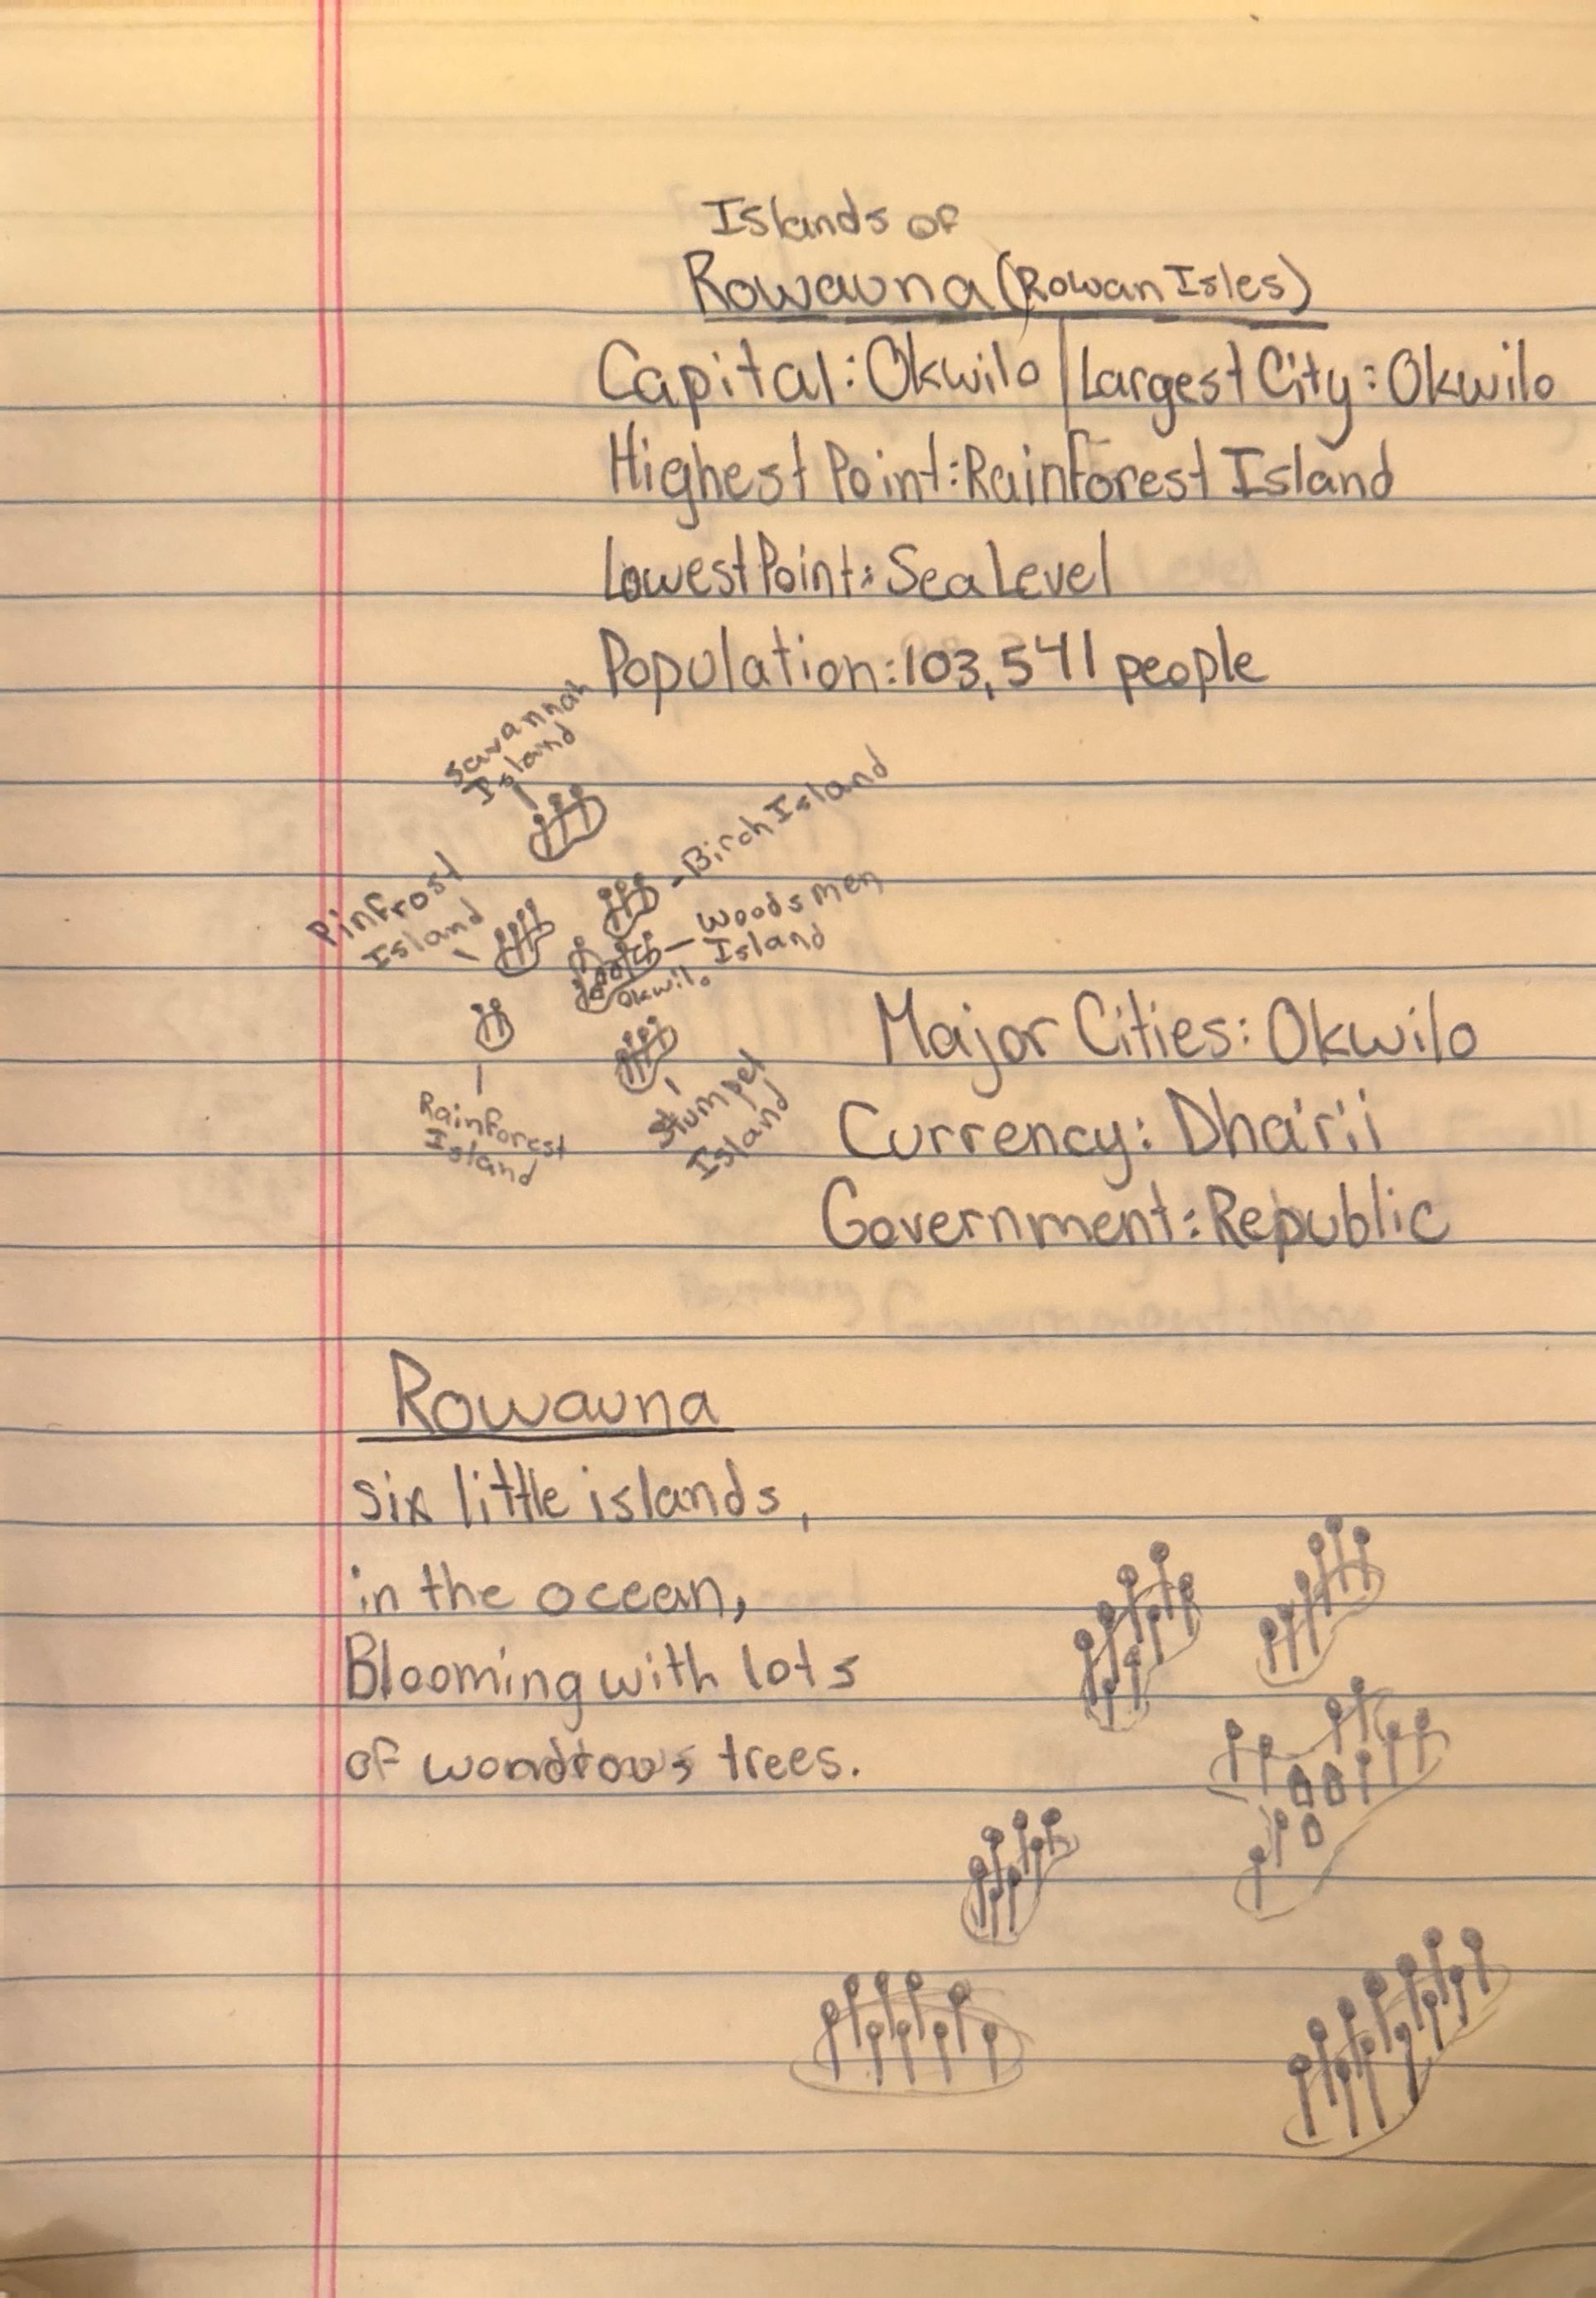 Islands of
Rowauna (Rowan Isles)
Capital: Okwilo | Largest City: Okwilo
Highest Point: Rainforest Island
Lowest Point: Sea Level
Population: 103,541 people
Savannah
Island
Birch Island
Pinfrost
Island
Woodsmen
Island
Okwilo
Rainforest
Island
Stumpet
Island
Major Cities: Okwilo
Currency: Dha'rii
Government: Republic
Rowauna
six little islands,
in the ocean,
Blooming with lots
of wondrous trees.